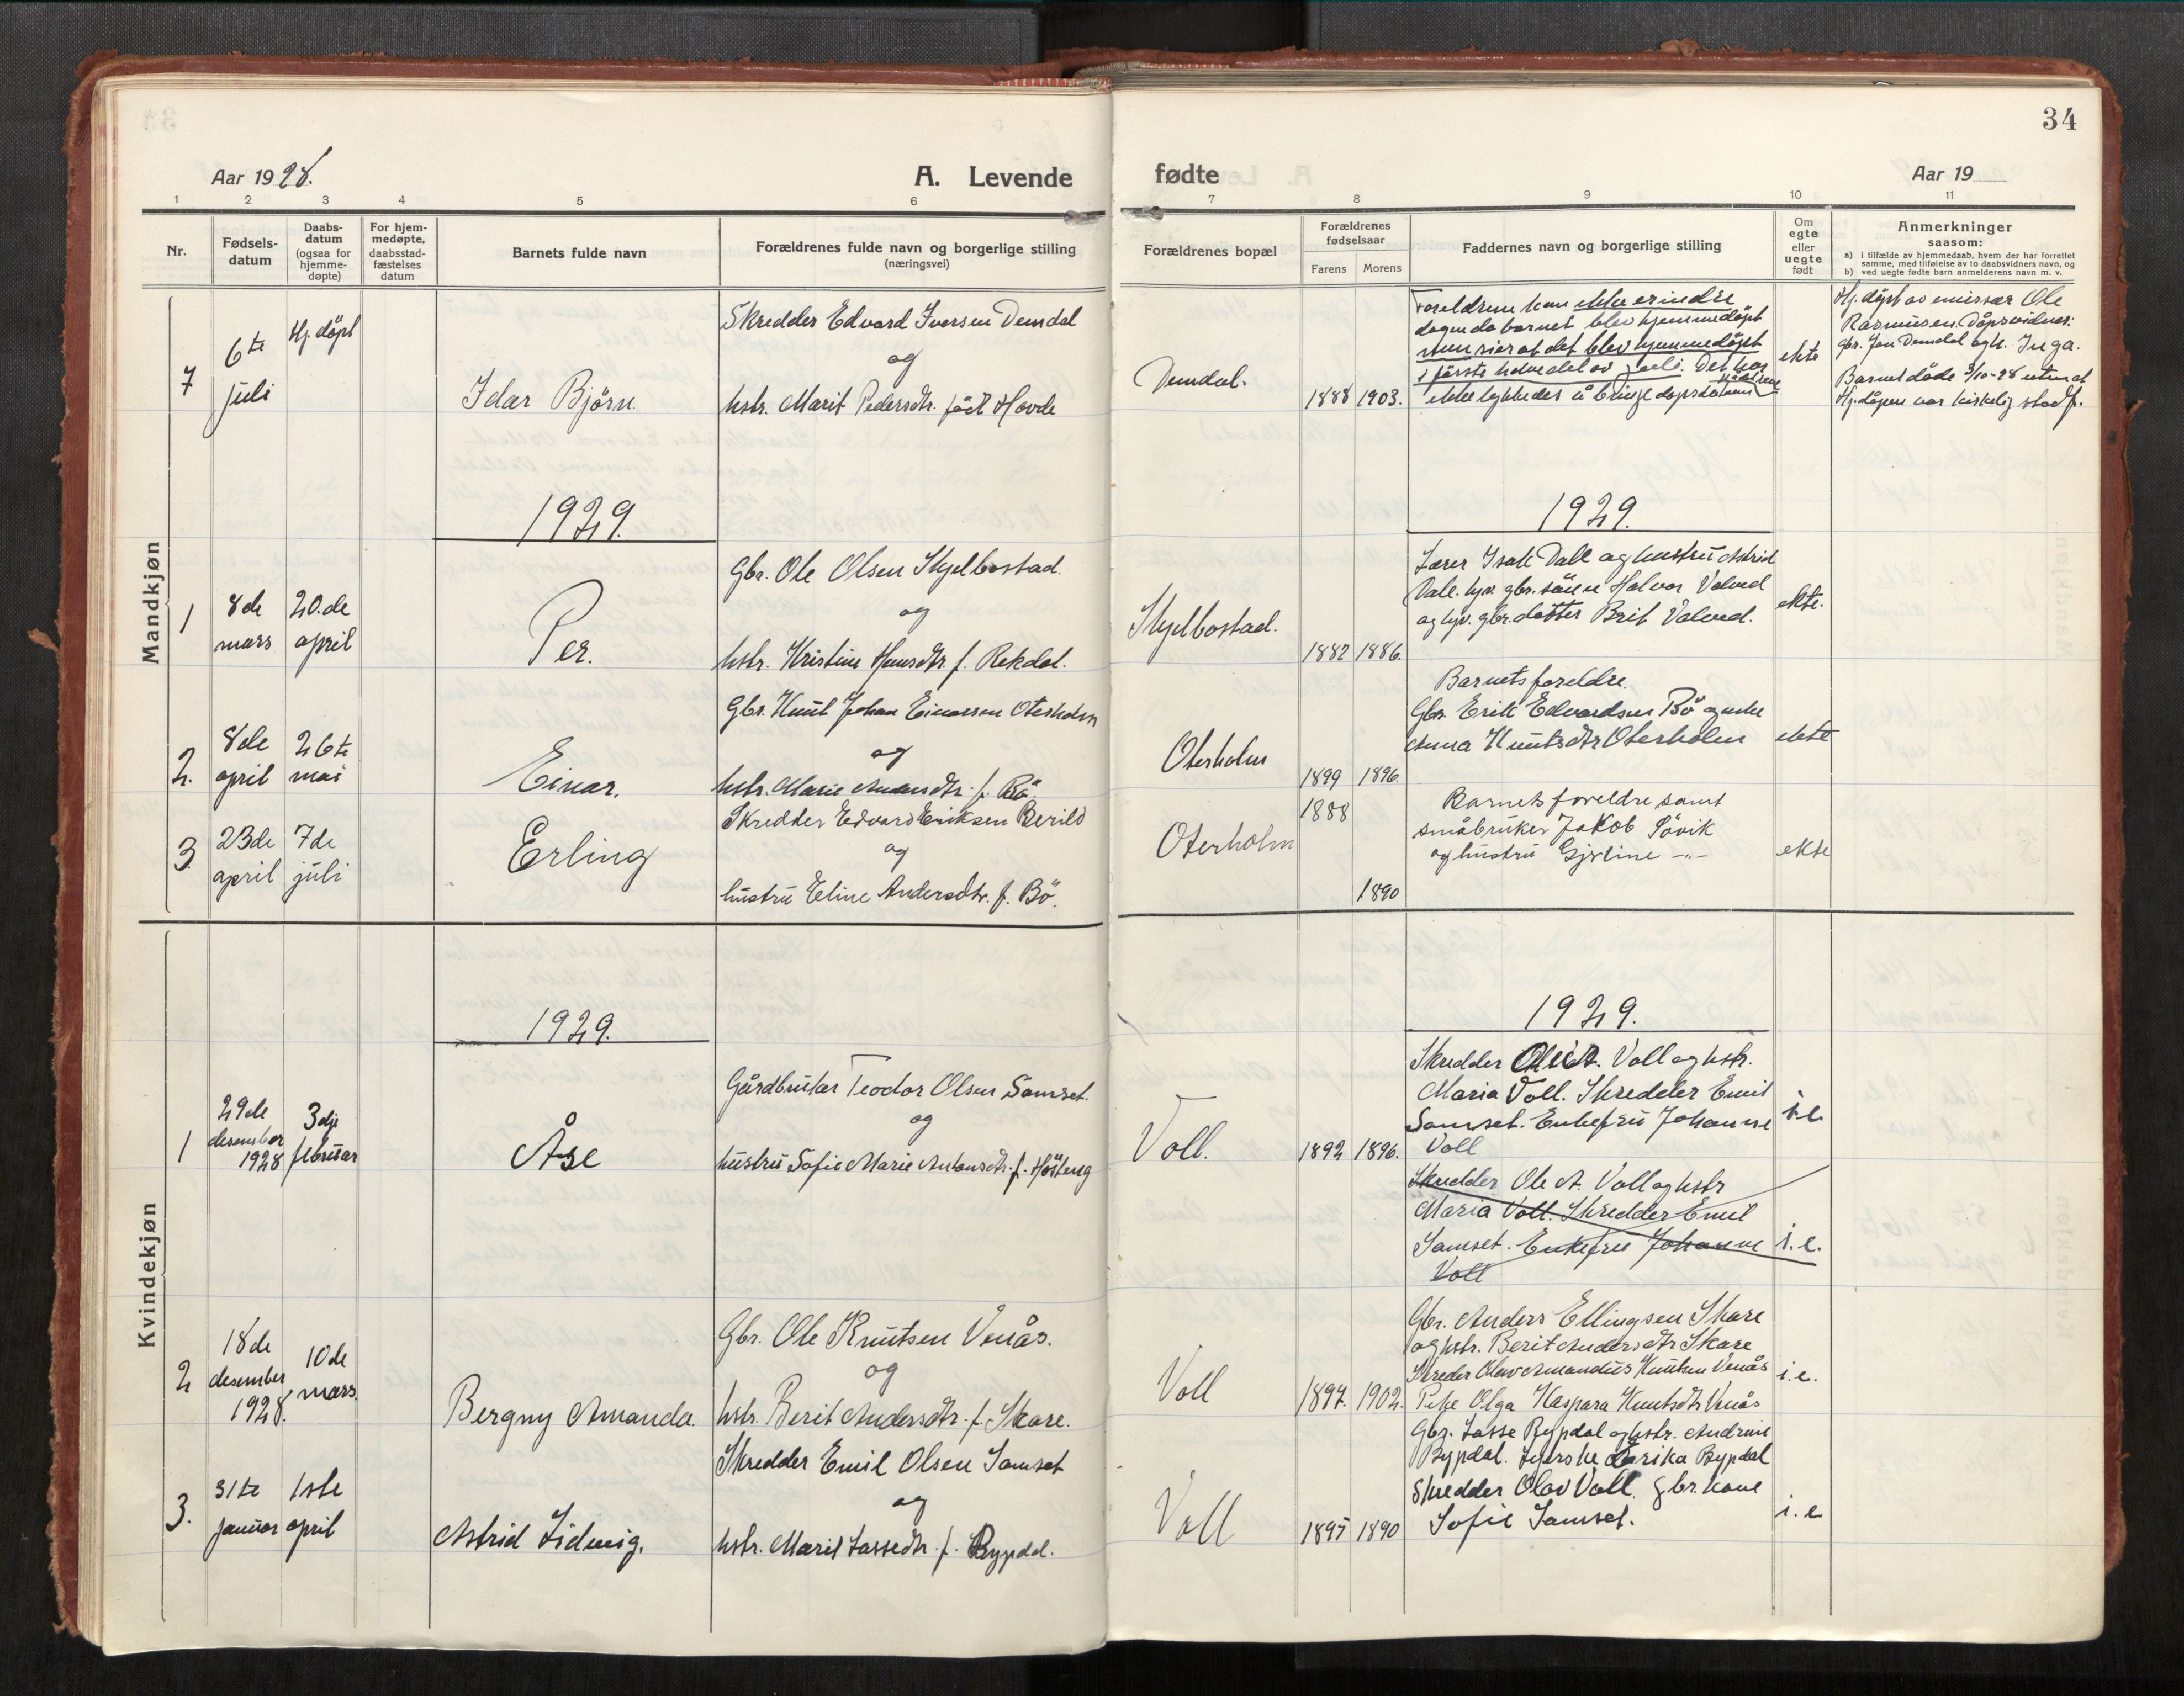 34
Aar 1928.
A. Levende
fødte
Aar 19
1 2 3 4 5 6 7 8 9 10 11
Nr.
Fødsels-
datum
Daabs-
datum
(ogsaa for
hjemme-
døpte)
For hjem-
medøpte,
daabsstad-
fæstelses
datum
Barnets fulde navn
Forældrenes fulde navn og borgerlige stilling
(næringsvei)
Forældrenes bopæl
Forældrenes
fødselsaar
Farens Morens
Faddernes navn og borgerlige stilling
Om
egte
eller
uegte
født
Anmerkninger
saasom:
a) i tilfælde av hjemmedaab, hvem der har forrettet
samme, med tilføielse av to daabsvidners navn, og
b) ved uegte fødte barn anmelderens navn m. v.
Mandkjøn
7
6te
juli
Hj. döpt
Idar Björn
Skredder Edvard Iversen Demdal
og
hstr. Marit Pedersdtr. født Hovde
Demdal.
1888 1903.
Foreldrene kan ikke erindre
dagen da barnet blev hjemmedöpt
men sier at det blev hjemmedöpt
i första halvdel av juli. Det har
ikke lykkedes å bringe dåpsdatoen
ekte
Hj. döpt av emissær Ole
Rasmusen. Dåpsvidner:
gbr. Jon Demdal og h. Inga.
Barnet döde 3/10-28 uten at
Hj. dåpen var kirkelig stadf.
1929.
1929.
1
8de
mars
20.de
april
Per.
Gbr. Ole Olsen Skjelbostad.
og
hstr. Kristine Hansdtr. f. Rekdal.
Skjelbostad.
1882 1886.
Lærer Isak Dale og hustru Astrid
Dale. hjv. gbr. sönn Halvor Valved
og hjv. gbr. datter Brit Valved.
ekte.
2.
8de
april
26te
mai
Einar.
Gbr. Knut Johan Einarsen Oterholm
og
hstr. Marie Andersdtr. f. Bö.
Oterholm
1899 1896.
Barnets foreldre.
Gbr. Erik Edvardsen Bö og enke
Anna Knutsdtr Oterholm
ekte
3.
23de
april
7de
juli
Erling
Skredder Edvard Eriksen Berild
og
hustru Eline Andersdtr. f. Bö.
Oterholm
1888
1890
Barnets foreldre samt
småbruker Jakob Sövik
og hustru Gjertine -"-
ekte
Kvindekjøn
1929.
1929.
1
29de
desember
1928
3dje
februar
Åse
Gårdbruker Teodor Olsen Samset.
og
hustru Sofie Marie Antonsdtr. f. Hösteng
Voll.
1892 1896.
Skredder Ole A. Voll og hstr.
Maria Voll. Skredder Emil
Samset. Enkefru Johanne
Voll
i.e
Skredder Ole A. Voll og hstr
Maria Voll. Skredder Emil
Samset. Enkefru Johanne
Voll
i.e.
2
18de
desember
1928.
10de
mars.
Bergny Amanda.
Gbr. Ole Knutsen Venås.
og
hstr. Berit Andersdtr. f. Skare.
Voll
1897. 1902.
Gbr. Anders Ellingsen Skare
og hstr. Berit Andersdtr Skare
Skreder Olav Amandus Knutsen Venås
Pike Olga Kaspara Knutsdtr Venås
i.e.
3.
31te
januar
1ste
april
Astrid Lidveig.
Skredder Emil Olsen Samset
og
hstr. Marit Lassedtr. f. Rypdal.
Voll
1895 1890
Gbr. Lasse Rypdal og hstr. Andrine
Rypdal. Syerske Marika Rypdal
Skredder Olav Voll. Gbr. kone
Sofie Samset.
i.e